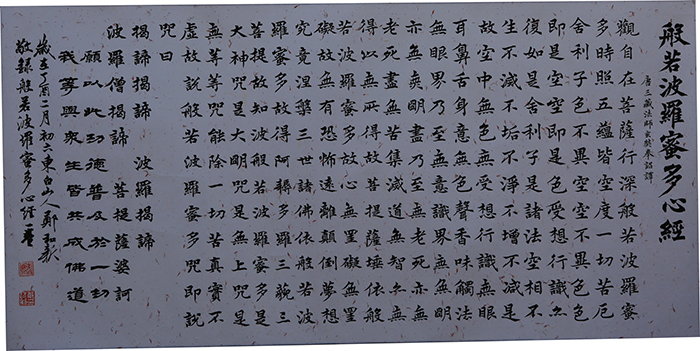 般若波羅蜜多心經
唐三藏法師玄奘奉詔譯
觀自在菩薩行深般若波羅蜜
多時照五蘊皆空度一切苦厄
舍利子色不異空空不異色色
即是空空即是色受想行識亦
復如是舍利子是諸法空相不
生不滅不垢不淨不增不減是
故空中無色無受想行識無眼
耳鼻舌身意無色聲香味觸法
無眼界乃至無意識界無無明
亦無無明盡乃至無老死亦無
老死盡無苦集滅道無智亦無
得以無所得故菩提薩埵依般
若波羅蜜多故心無罣礙無罣
礙故無有恐怖遠離顛倒夢想
究竟涅槃三世諸佛依般若波
羅蜜多故得阿耨多羅三藐三
菩提故知般若波羅蜜多是
大神咒是大明咒是無上咒是
無等等咒能除一切苦真實不
虛故說般若波羅蜜多咒即說
咒曰
揭諦揭諦 波羅揭諦
波羅僧揭諦 菩提薩婆訶
願以此功德普及於一切
我等與眾生皆共成佛道
歲在丁酉二月初六東白山人鄭
敬錄般若波羅蜜多心經一卷